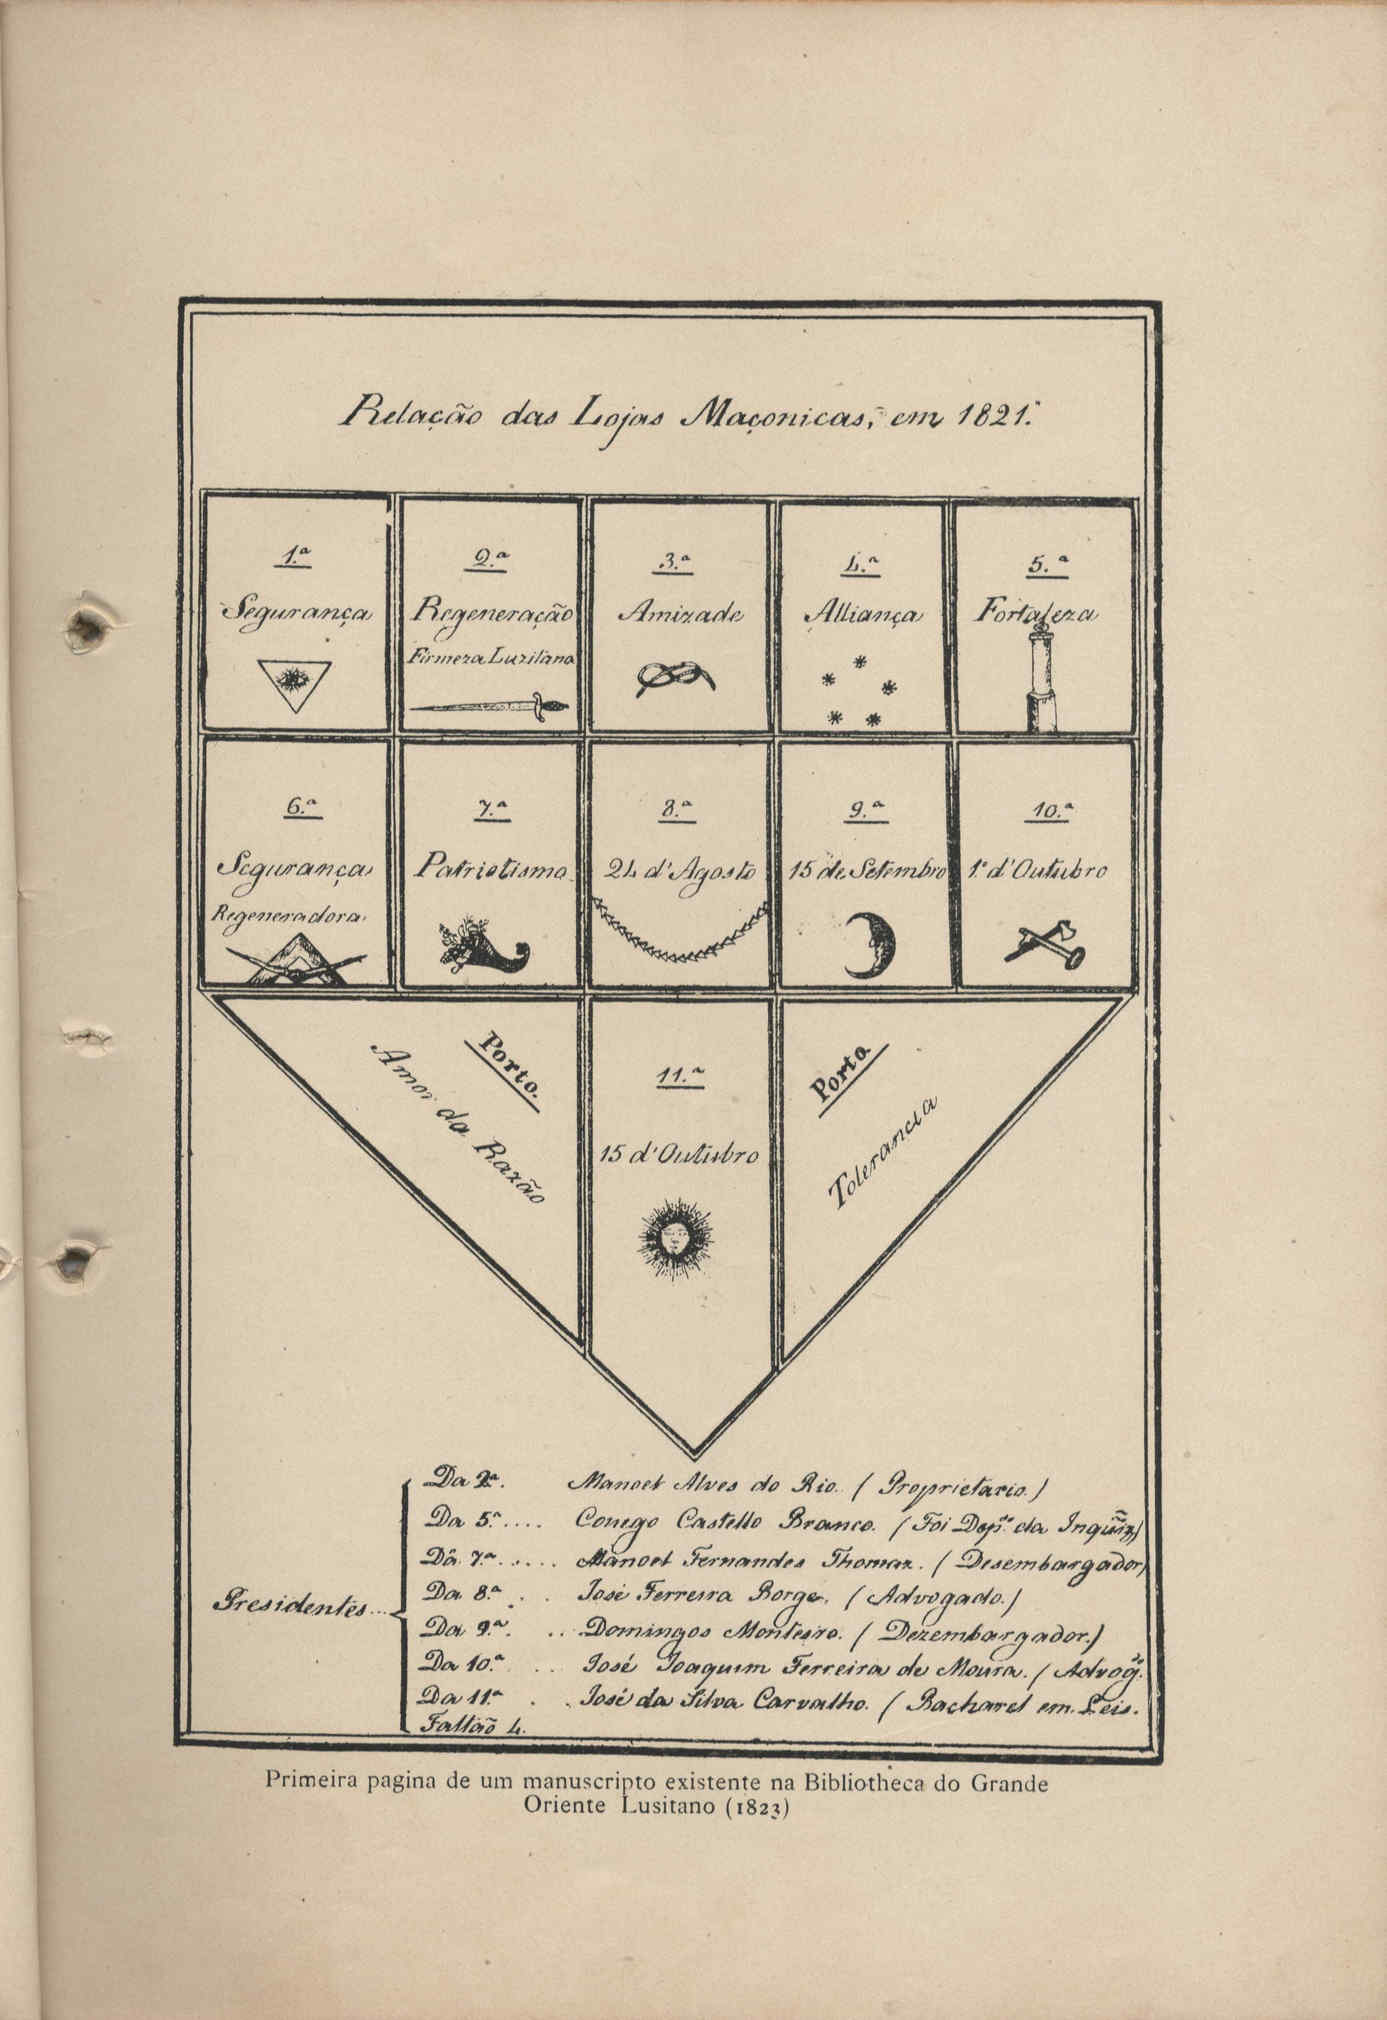 Relação das Lojas Maçonicas, em 1821.
1.ª
Segurança
2.ª
Regeneração
Firmeza Luzitana
3.ª
Amizade
4.ª
Alliança
5.ª
Fortaleza
6.ª
Segurança
Regeneradora.
7.ª
Patriotismo.
8.ª
24 d'Agosto
9.ª
15 de Setembro
10.ª
1º d'Outubro
Porto.
Amor da Razão
11.ª
15 d'Outubro
Porto
Tolerancia
Presidentes...
Da 2ª. Manoel Alves do Rio. (Proprietario.)
Da 5.ª.... Conego Castello Branco. (Foi Dep.º da Inquiz)
Da 7.ª..... Manoel Fernandes Thomaz. (Desembargador)
Da 8.ª . . José Ferreira Borges. (Advogado.)
Da 9.ª. ... Domingos Monteiro. (Dezembargador.)
Da 10.ª. .. José Joaquim Ferreira de Moura. (Advogº.
Da 11.ª . . José da Silva Carvalho. (Bacharel em Leis.
Faltão 4.
Primeira pagina de um manuscripto existente na Bibliotheca do Grande
Oriente Lusitano (1823)